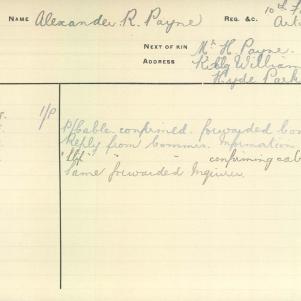 NAME Alexander R. Payne REG. &C. 10th F
Arti
NEXT OF KIN Mr H Payne.
ADDRESS William
Hyde Park
1/P P/Cable confirmed. forwarded
Reply from Commrs. Information
" " confirming cab
Same forwarded Inquirer